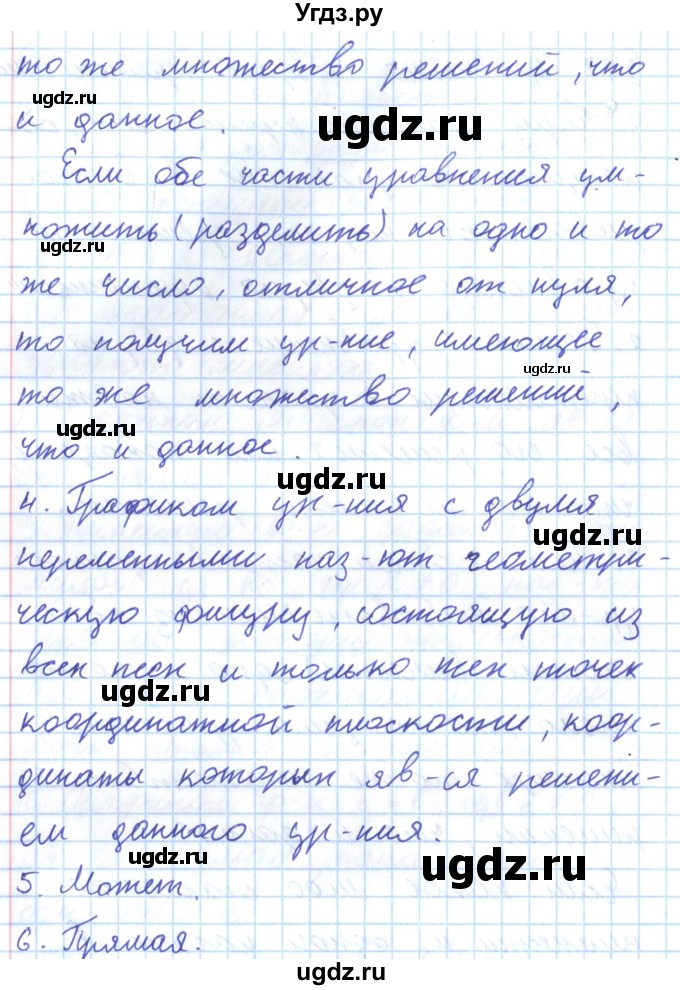 Угдз.ру
то же множество решений, что
ugdz.ru
ugdz.ru
и данное.
Если обе части уравнения ум-
ugdz.ru
ножить (разделить) на одно и то
же число, отличное от нуля,
то получим ур-ние, имеющее
ugdz.ru
то же множество решений,
ugdz.ru
что и данное.
ugdz.ru
4. Графиком ур-ния с двумя
ugdz.ru
переменными наз-ют геометри-
ческую фигуру, состоящую из
ugdz.ru
всех тех и только тех точек
ugdz.ru
координатной плоскости, коор-
динаты которых яв-ся решени-
ugdz.ru
ем данного ур-ния.
ugdz.ru
5. Может.
ugdz.ru
6. Прямая.
ugdz.ru